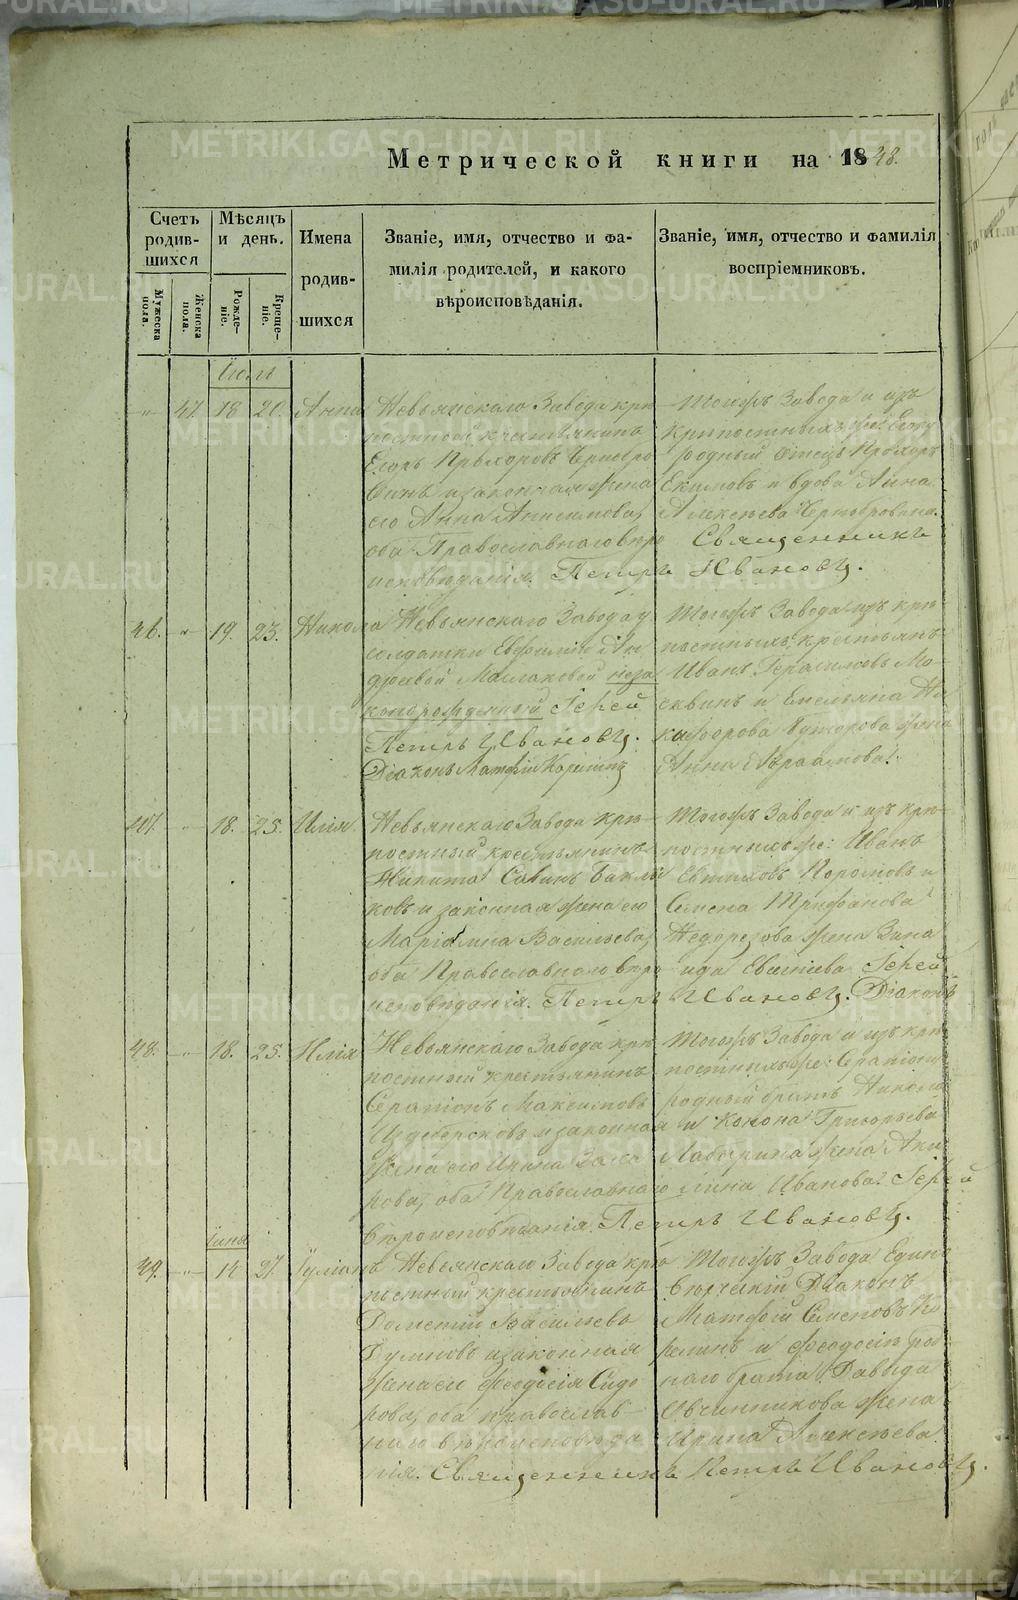 Метрической книги на 1848.
Счетъ родив-шихся
Мужеска пола.
Женска пола.
Мѣсяцъ и день.
Рожде-ніе.
Креще-ніе.
Имена родив-шихся
Званіе, имя, отчество и фа-
милія родителей, и какого
вѣроисповѣданія.
Званіе, имя, отчество и фамилія
воспріемниковъ.
Іюль
„ 47. 18 20. Анна
Невьянскаго Завода крѣ-
постной крестьянинъ
Егоръ Прохоровъ Чернобро
винъ и законная жена
его Анна Анисимова,
оба Православнаго вѣро
исповѣданія. Петръ Ивановъ.
Тогожъ Завода и изъ
крѣпостныхъ же:
родный Отецъ Прохоръ
Екимовъ и вдова Анна
Алексѣева Чернобровина.
Священникъ
46. „ 19. 23. Никола
Невьянскаго Завода у
солдатки Евфиміи Ан
дреевой Маслаковой неза
коннорожденный Іерей
Петръ Ивановъ.
Діаконъ Матфій Корелинъ
Тогожъ Завода изъ крѣ
постныхъ крестьянъ
Иванъ Герасимовъ Мо-
сквинъ и Емельяна Ни
кифорова жена
Анна Абраамова.
47. „ 18. 25. Илія
Невьянскаго Завода крѣ-
постный крестьянинъ
Никита Савинъ
ковъ и законная жена его
Маріамна Васильева,
оба Православнаго вѣро
исповѣданія. Петръ Ивановъ. Діаконъ
Тогожъ Завода и изъ крѣ-
постныхъ же: Иванъ
Евтиховъ и
Семена Трифанова
Недорезова жена Зина
ида Евгніева Іерей
48. „ 18. 25. Илія
Невьянскаго Завода крѣ
постный крестьянинъ
Серапіонъ Максимовъ
Издеберсковъ и законная
жена его Ирина Заха
рова, оба Православнаго
вѣроисповѣданія. Петръ Ивановъ.
Тогожъ Завода и изъ крѣ
постныхъ же: Серапіона
родный братъ Никола
и Конона Григорьева
жена Ани
Иванова. Іерей
Іюнь
49. „ 14 27. Іуліанъ
Невьянскаго Завода крѣ
постный крестьянинъ
Дометій Васильевъ
и законная
жена его Феодосія Сидо
рова, оба православ-
наго вѣроисповѣда
нія. Священникъ Петръ Ивановъ.
Тогожъ Завода Едино
вѣрческій Діаконъ
Матфій Семеновъ Ко
релинъ и Феодосіи род
наго брата Давыда
Овчинникова жена
Ирина Алексѣева.
METRIKI.GASO-URAL.RU